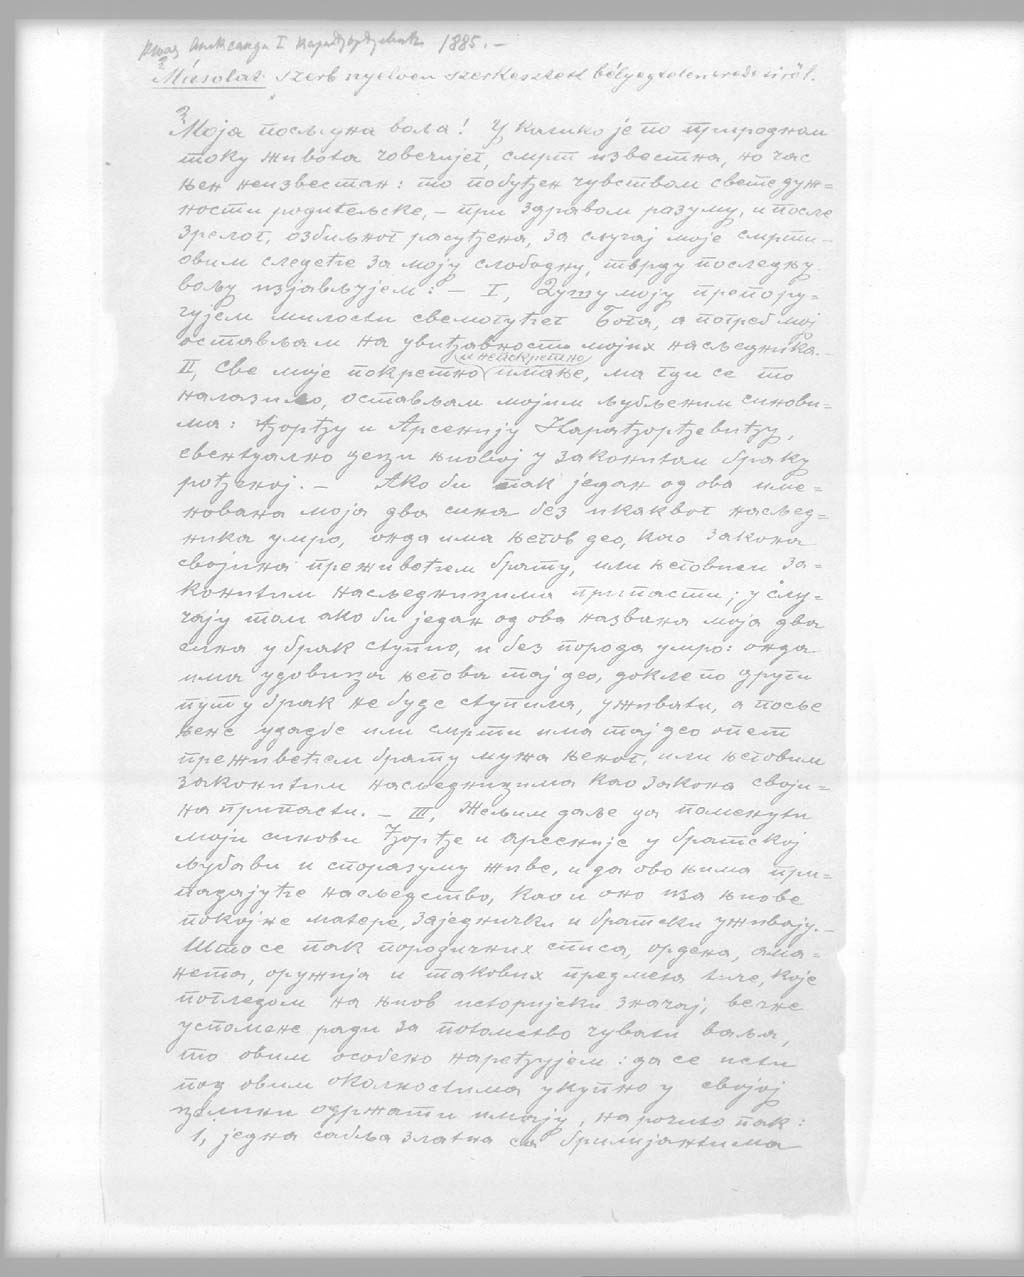 Књаз Александар I Карађорђевић 1885. –
Másolat szerb nyelven szerkesztett bélyegtelen eredetiről.
Моја посљедна вола! У колико је по природном
току живота човечијег, смрт известна, но час
њен неизвестан: то побуђен чувством свете дуж=
ности родитељске, – при здравом разуму, и после
зрелог, озбиљног расуђења, за случај моје смрти –
овим следеће за моју слободну, тврду последњу
вољу изјављујем: – I, Душу моју препору=
чујем милости свемогућег Бога, а погреб мој
остављам на увиђавность мојих насљедника. –
II, Све моје покретно (и непокретно) имање, ма гди се то
налазило, остављам мојим љубљеним синови=
ма: Ђорђу и Арсенију Карађорђевићу,
евентуално деци њиовој у законитом браку
рођеној. – Ако би пак један од ова име=
нована моја два сина без икаквог насљед=
ника умро, онда има његов део, као законa
својина преживећем брату, или његовим за=
конитим насљедницима припасти; у слу=
чају том ако би један од ова названа моја два
сина у брак ступио, и без порода умро: онда
има удовица његова тај део, докле по други
пут у брак не буде ступила, уживати, а после
њене удадбе или смрти има тај део опет
преживећем брату мужа њеног, или његовим
законитим насљедницима као закона своји=
на припасти. – III, Желим даље да поменути
моји синови Ђорђе и Арсеније у братској
љубави и споразуму живе, и да ово њима при=
падајуће насљедство, као и оно иза њиове
покојне матере, заједнички и братски уживају. –
Што се пак породичних списа, ордена, ама=
нета, оружија и таковых предмета тиче, које
погледом на њиов историјски значај, вечне
успомене ради за потомство чувати ваља,
то овим особено наређујем: да се исти
под овим околностима укупно у својој
целини одржати имају, нарочито пак:
1, једна сабља златна са брилијантима